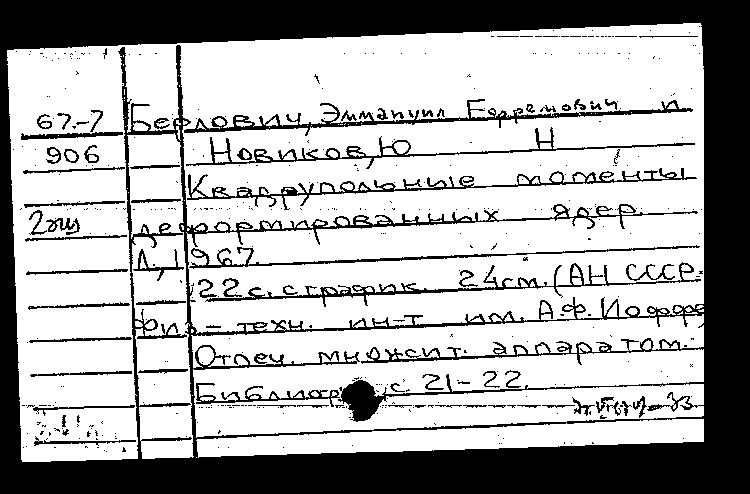 67-7 Берлович, Эммануил Ефремович и
906 Новиков, Ю Н
Квадрупольные моменты
2 экз деформированных ядер.
Л., 1967.
22 с. с график. 24 см. (АН СССР.
Физ-техн. ин-т им. А.Ф. Иоффе)
Отпеч. множит. аппаратом.
Библиогр с 21-22.